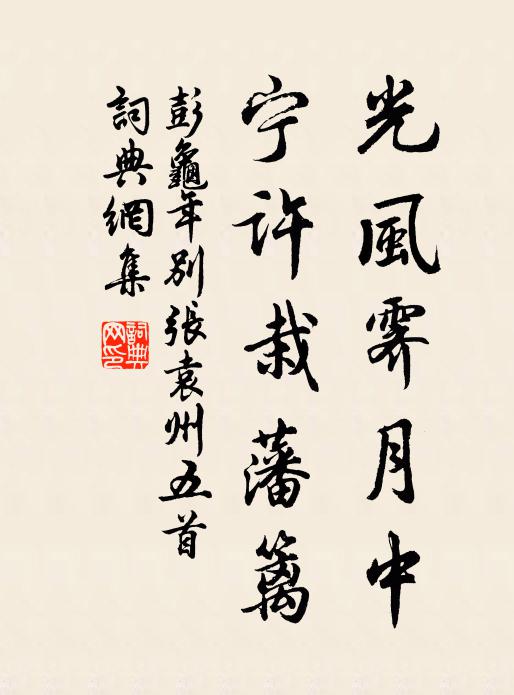 光風霽月中
宁許栽藩籬
彭龜年別張袁州五首
詞典網集
詞典網印